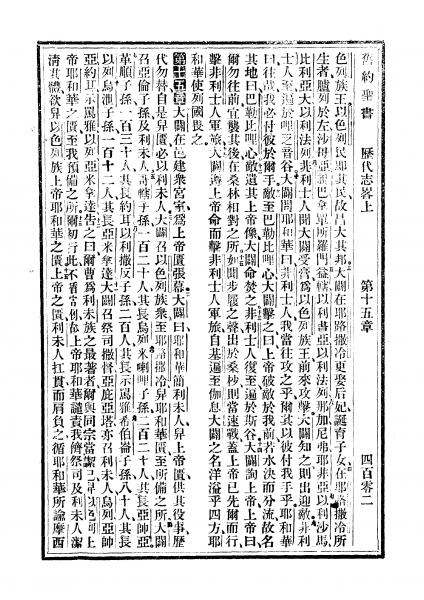 舊約聖書 歷代志畧上 第十五章 四百零二
色列族王以色列民卽其民故昌大其邦大闢在耶路撒冷更娶后妃誕育子女在耶路撒冷所
生者臚列於左沙母亞朔巴拿單所羅門益轄以利書亞以利法列那加尼弗耶非亞以利沙馬
比利亞大以利法列非利士人聞大闢受膏爲以色列族王前來攻擊大闢知之則出迎敵非利
士人至遍於哩乏音谷大闢問耶和華曰非利士人我當往攻之乎爾其以彼付我手乎耶和華
曰往哉我必付彼於爾手敵至巴勒比哩心大闢擊之曰上帝破敵於我前若水決而分流故名
其地曰巴勒比哩心敵遺其上帝像大闢命焚之非利士人復至遍於斯谷大闢詢上帝上帝曰
爾勿往前宜襲其後在桑林相對之所如聞步履之聲出於桑杪則當速戰蓋上帝已先爾而行
擊非利士人軍旅大闢遵上帝命而擊非利士人軍旅自基遍至伽息大闢之名洋溢乎四方耶
和華使列國畏之
第十五章大闢在邑建衆宮室爲上帝匱張幕大闢曰耶和華簡利未人舁上帝匱供其役事歷
代勿替自是舁匱必以利未人大闢召以色列族衆至耶路撒冷舁耶和華匱至所備之所大闢
召亞倫子孫及利未人哥轄子孫一百二十人其長烏列米喇哩子孫二百二十人其長亞帥亞
革順子孫一百三十人其長約耳以利撒反子孫二百人其長示罵雅希伯崙子孫八十人其長
以列烏泄子孫一百十二人其長亞米拿達大闢召祭司撒督亞庇亞塔亦召利未人烏列亞帥
亞約耳示罵雅以列亞米拿達告之曰爾曹爲利未族之最著者爾與同宗當潔己舁以色列上
帝耶和華之匱至我預備之所爾初行此不 故上帝耶和華譴責我儕祭司及利未人潔
淸其體欲舁以色列族上帝耶和華之匱利未人扛貫而肩負之循耶和華所諭摩西